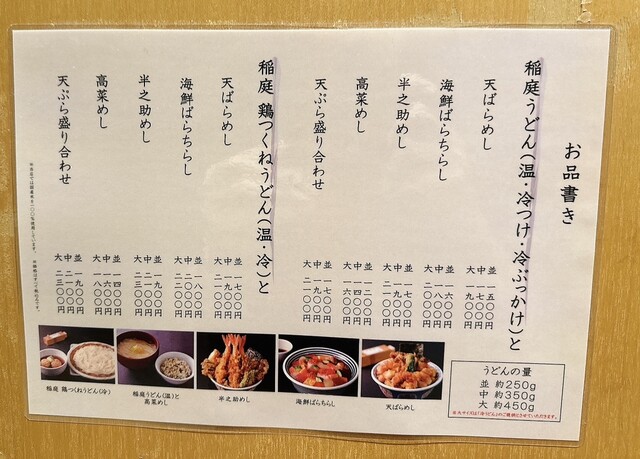 お品書き
稲庭うどん(温・冷つけ・冷ぶっかけ)と
天ばらめし
並 一五〇〇円
中 一七〇〇円
大 一九〇〇円
海鮮ばらちらし
並 一六〇〇円
中 一八〇〇円
大 二〇〇〇円
半之助めし
並 一七〇〇円
中 一九〇〇円
大 二一〇〇円
高菜めし
並 一二〇〇円
中 一四〇〇円
大 一六〇〇円
天ぷら盛り合わせ
並 一七〇〇円
中 一九〇〇円
大 二一〇〇円
稲庭 鶏つくねうどん(温・冷)と
天ばらめし
並 一七〇〇円
中 一九〇〇円
大 二一〇〇円
海鮮ばらちらし
並 一八〇〇円
中 二〇〇〇円
大 二二〇〇円
半之助めし
並 一九〇〇円
中 二一〇〇円
大 二三〇〇円
高菜めし
並 一四〇〇円
中 一六〇〇円
大 一八〇〇円
天ぷら盛り合わせ
並 一九〇〇円
中 二一〇〇円
大 二三〇〇円
稲庭 鶏つくねうどん(冷)
稲庭うどん(温)と
高菜めし
半之助めし
海鮮ばらちらし
天ばらめし
うどんの量
並 約250g
中 約350g
大 約450g